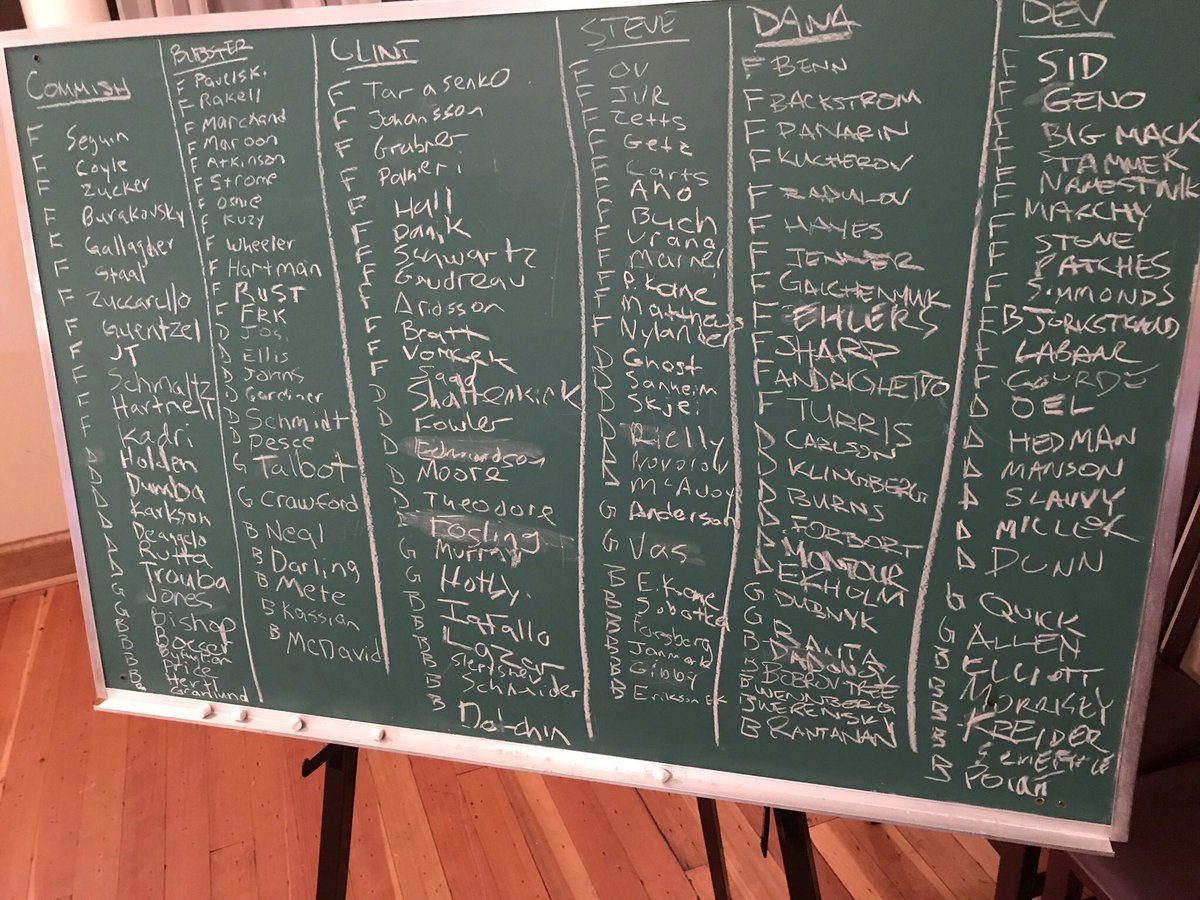 COMMISH
F Seguin
F Coyle
F Zucker
F Burakovsky
F Gallagher
F Staal
F Zuccarillo
F Guentzel
F JT
F Schmaltz
F Hartnell
F Kadri
D Holden
D Dumba
D Karlsson
D Deangelo
D Rutta
D Trouba
G Jones
G Bishop
B Boeser
B
B Price
B Hertl
B Granlund
BUBSTER
F Pavelski
F Rakell
F Marchand
F Maroon
F Atkinson
F Strome
F Oshie
F Kuzy
F Wheeler
F Hartman
F RUST
F FRK
D Josi
D Ellis
D Johns
D Gardiner
D Schmidt
D Pesce
G Talbot
G Crawford
B Neal
B Darling
B Mete
B Kassian
B McDavid
CLINT
F Tarasenko
F Johansson
F Grabner
F Palmeri
F Hall
F Panik
F Schwartz
F Gaudreau
F Arvidsson
F Bratt
F Voracek
F Saad
D Shattenkirk
D Fowler
D Edmundson
D Moore
D Theodore
D Fosling
G Murray
G Holtby
B Iafallo
B Lazar
B
B Schneider
B Dal-chin
STEVE
F OV
F JVR
F Zetts
F Getz
F Carts
F Aho
F Buch
F Vrana
F Marner
F P.Kane
F Matthews
F Nylander
D Ghost
D Sanheim
D Skjei
D Rielly
D Provorov
D McAvoy
G Anderson
G Vas
B E.Kane
B Sobotka
B Forsberg
B Janmark
B Gibby
B Eriksson Ek
DANA
F BENN
F BACKSTROM
F PANARIN
F KUCHEROV
F RADULOV
F HAYES
F JENNER
F GALCHENYUK
F EHLERS
F SHARP
F ANDRIGHETTO
F TURRIS
D CARLSON
D KLINGBERG
D BURNS
D FORBORT
D MONTOUR
D EKHOLM
G DUBNYK
G RAANTA
B DADONOV
B BOBROVTREE
B WENNBERG
B WERENSKY
B RANTANAN
DEV
F SID
F GENO
F BIG MACK
F STAMMER
F NAMESTNIK
F MARCHY
F STONE
F PATCHES
F SIMMONDS
F BJORKSTRAND
F LABAR
F GOURDE
D OEL
D HEDMAN
D MANSON
D SLAVVY
D MILLER
D DUNN
G QUICK
G ALLEN
B ELLIOTT
B MORRISEY
B KREIDER
B
B POINT